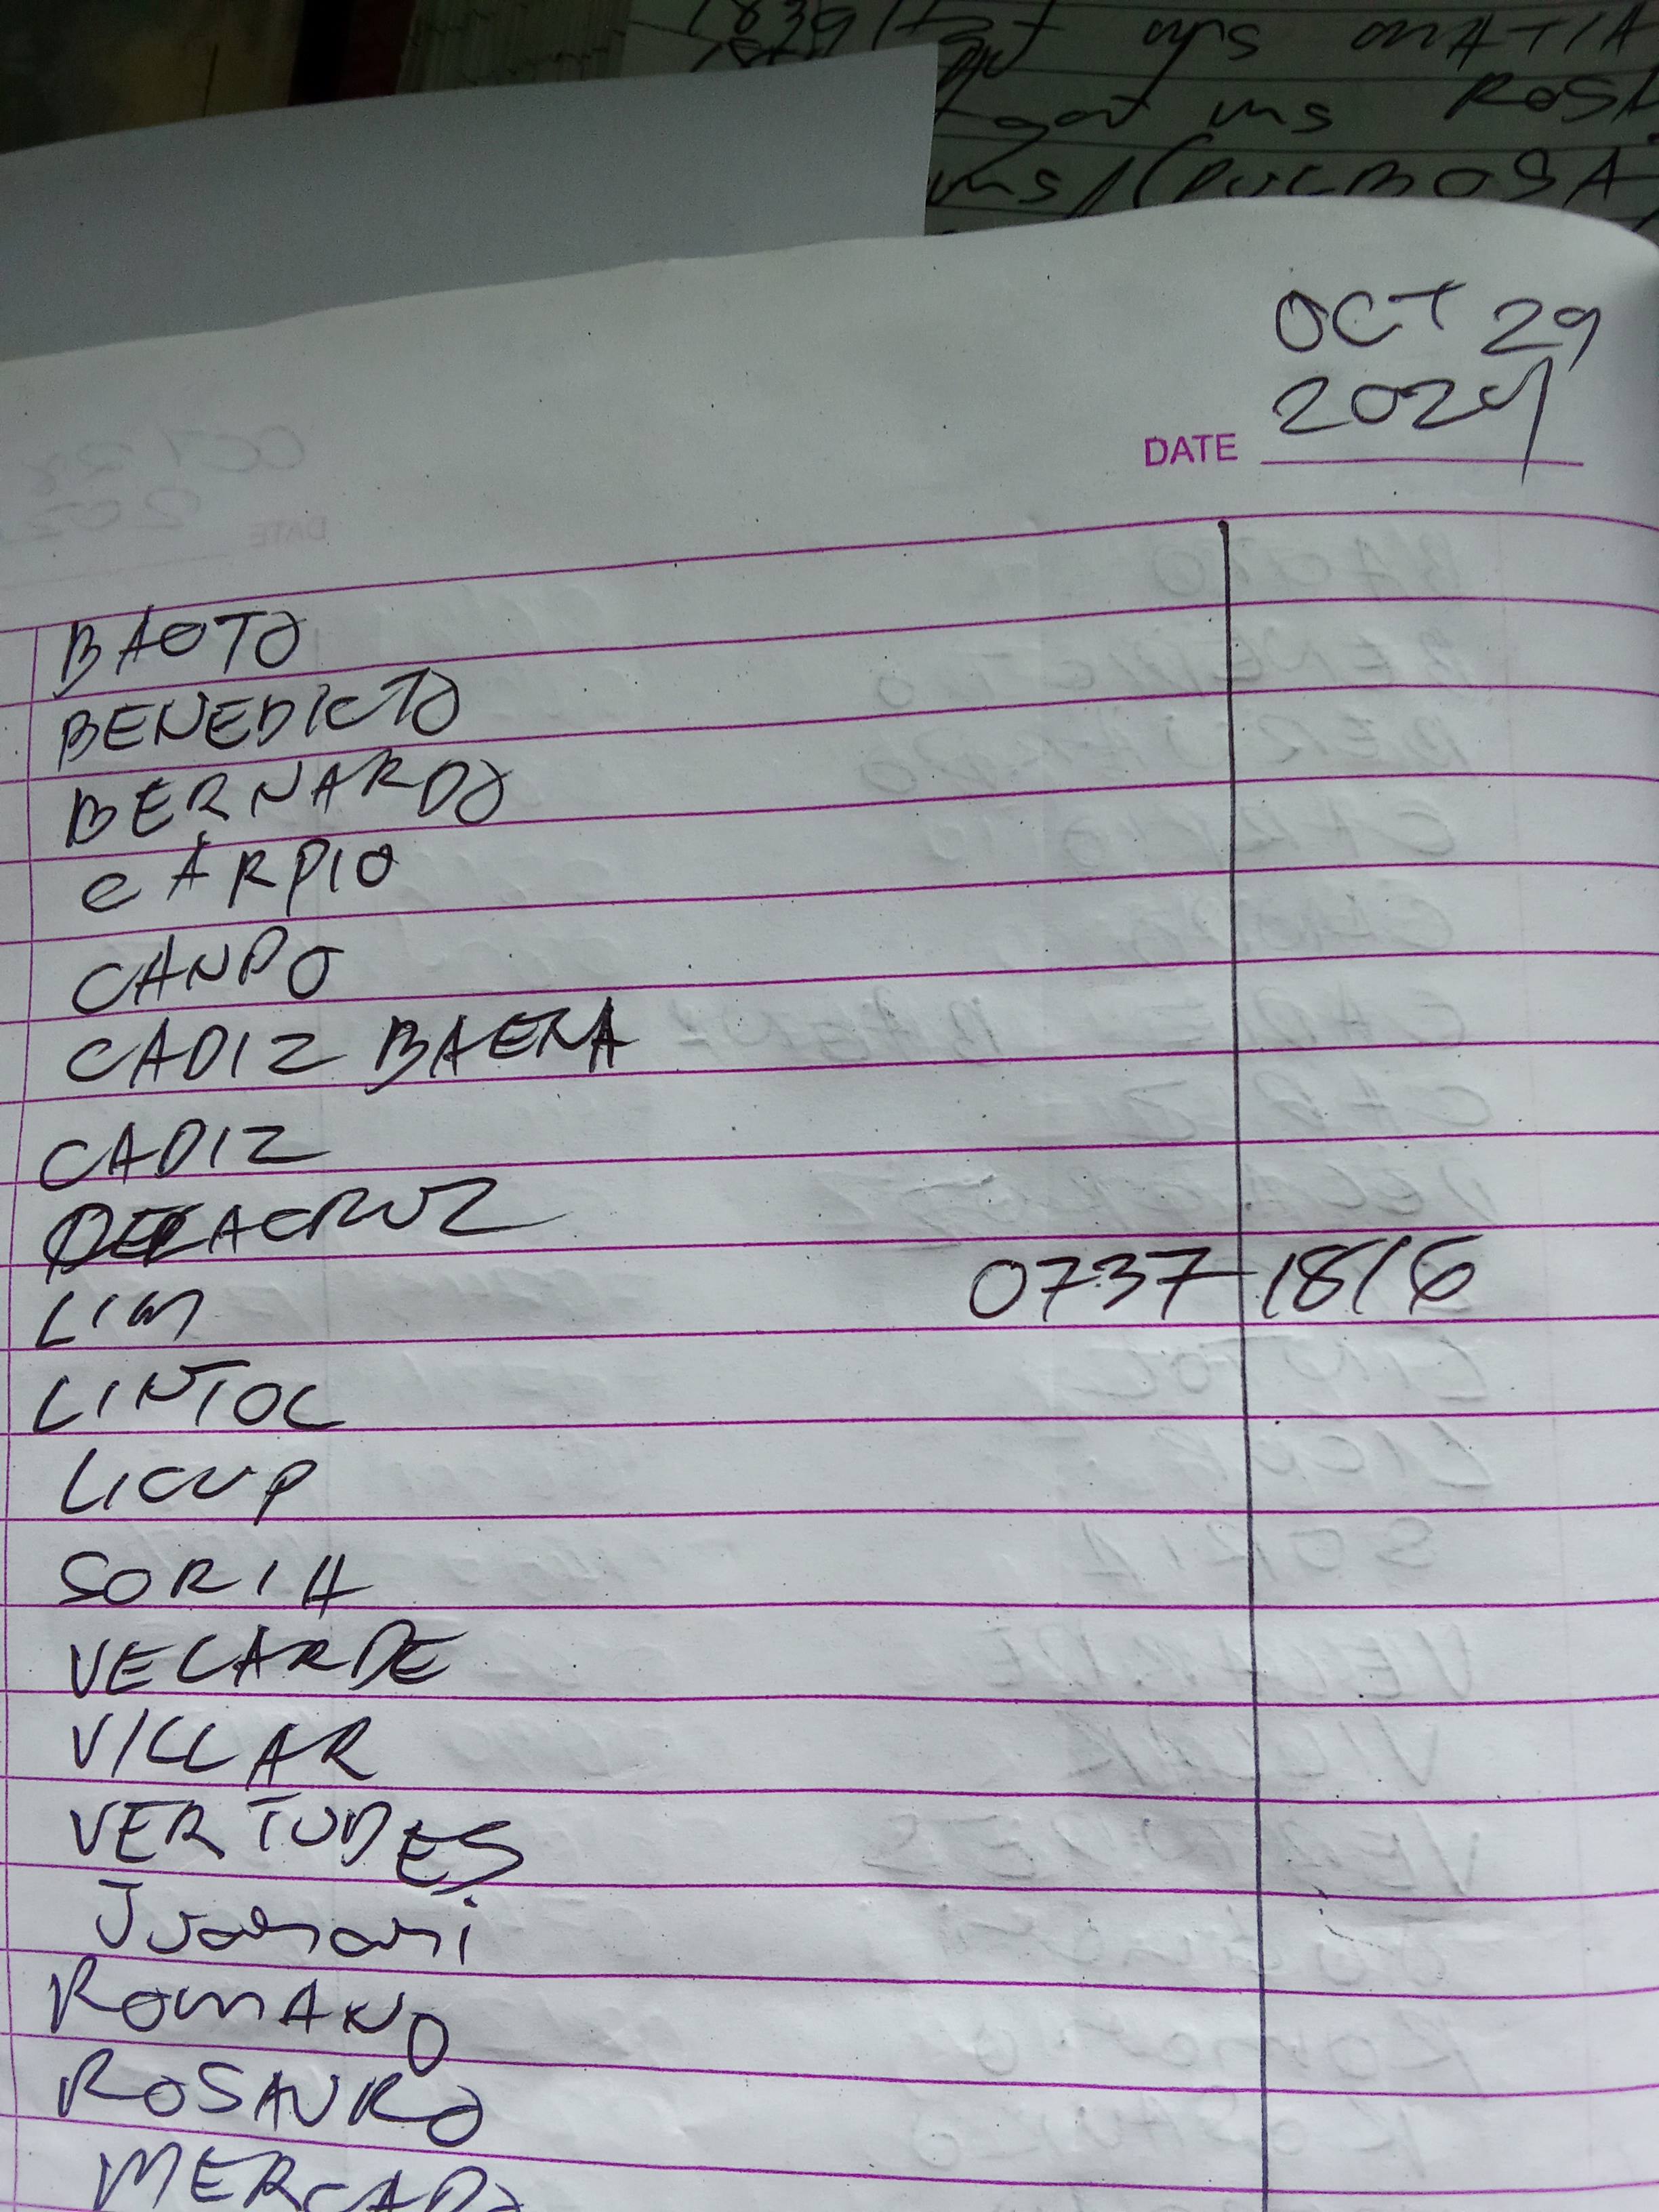 1839
mrs MATIA
ms ROSA
ms/(PULBOSA
OCT 29
2024
DATE
BAOTO
BENEDICTO
BERNARDO
CARPIO
CANPO
CADIZ BAENA
CADIZ
DELACRUZ
LIM 0737-1816
LINTOC
LICUP
SORIA
VELARDE
VILLAR
VERTUDES
ROMANO
ROSAURO
MERCADO